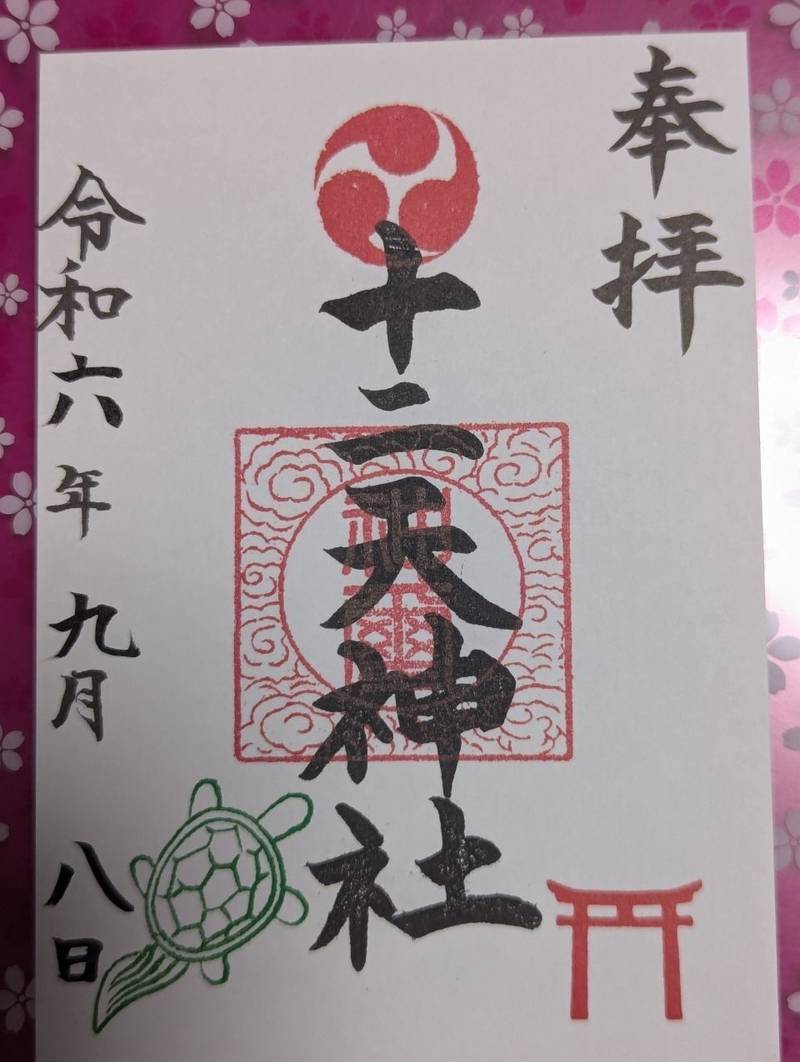 奉拝
十二天神社
神璽
令和六年九月八日